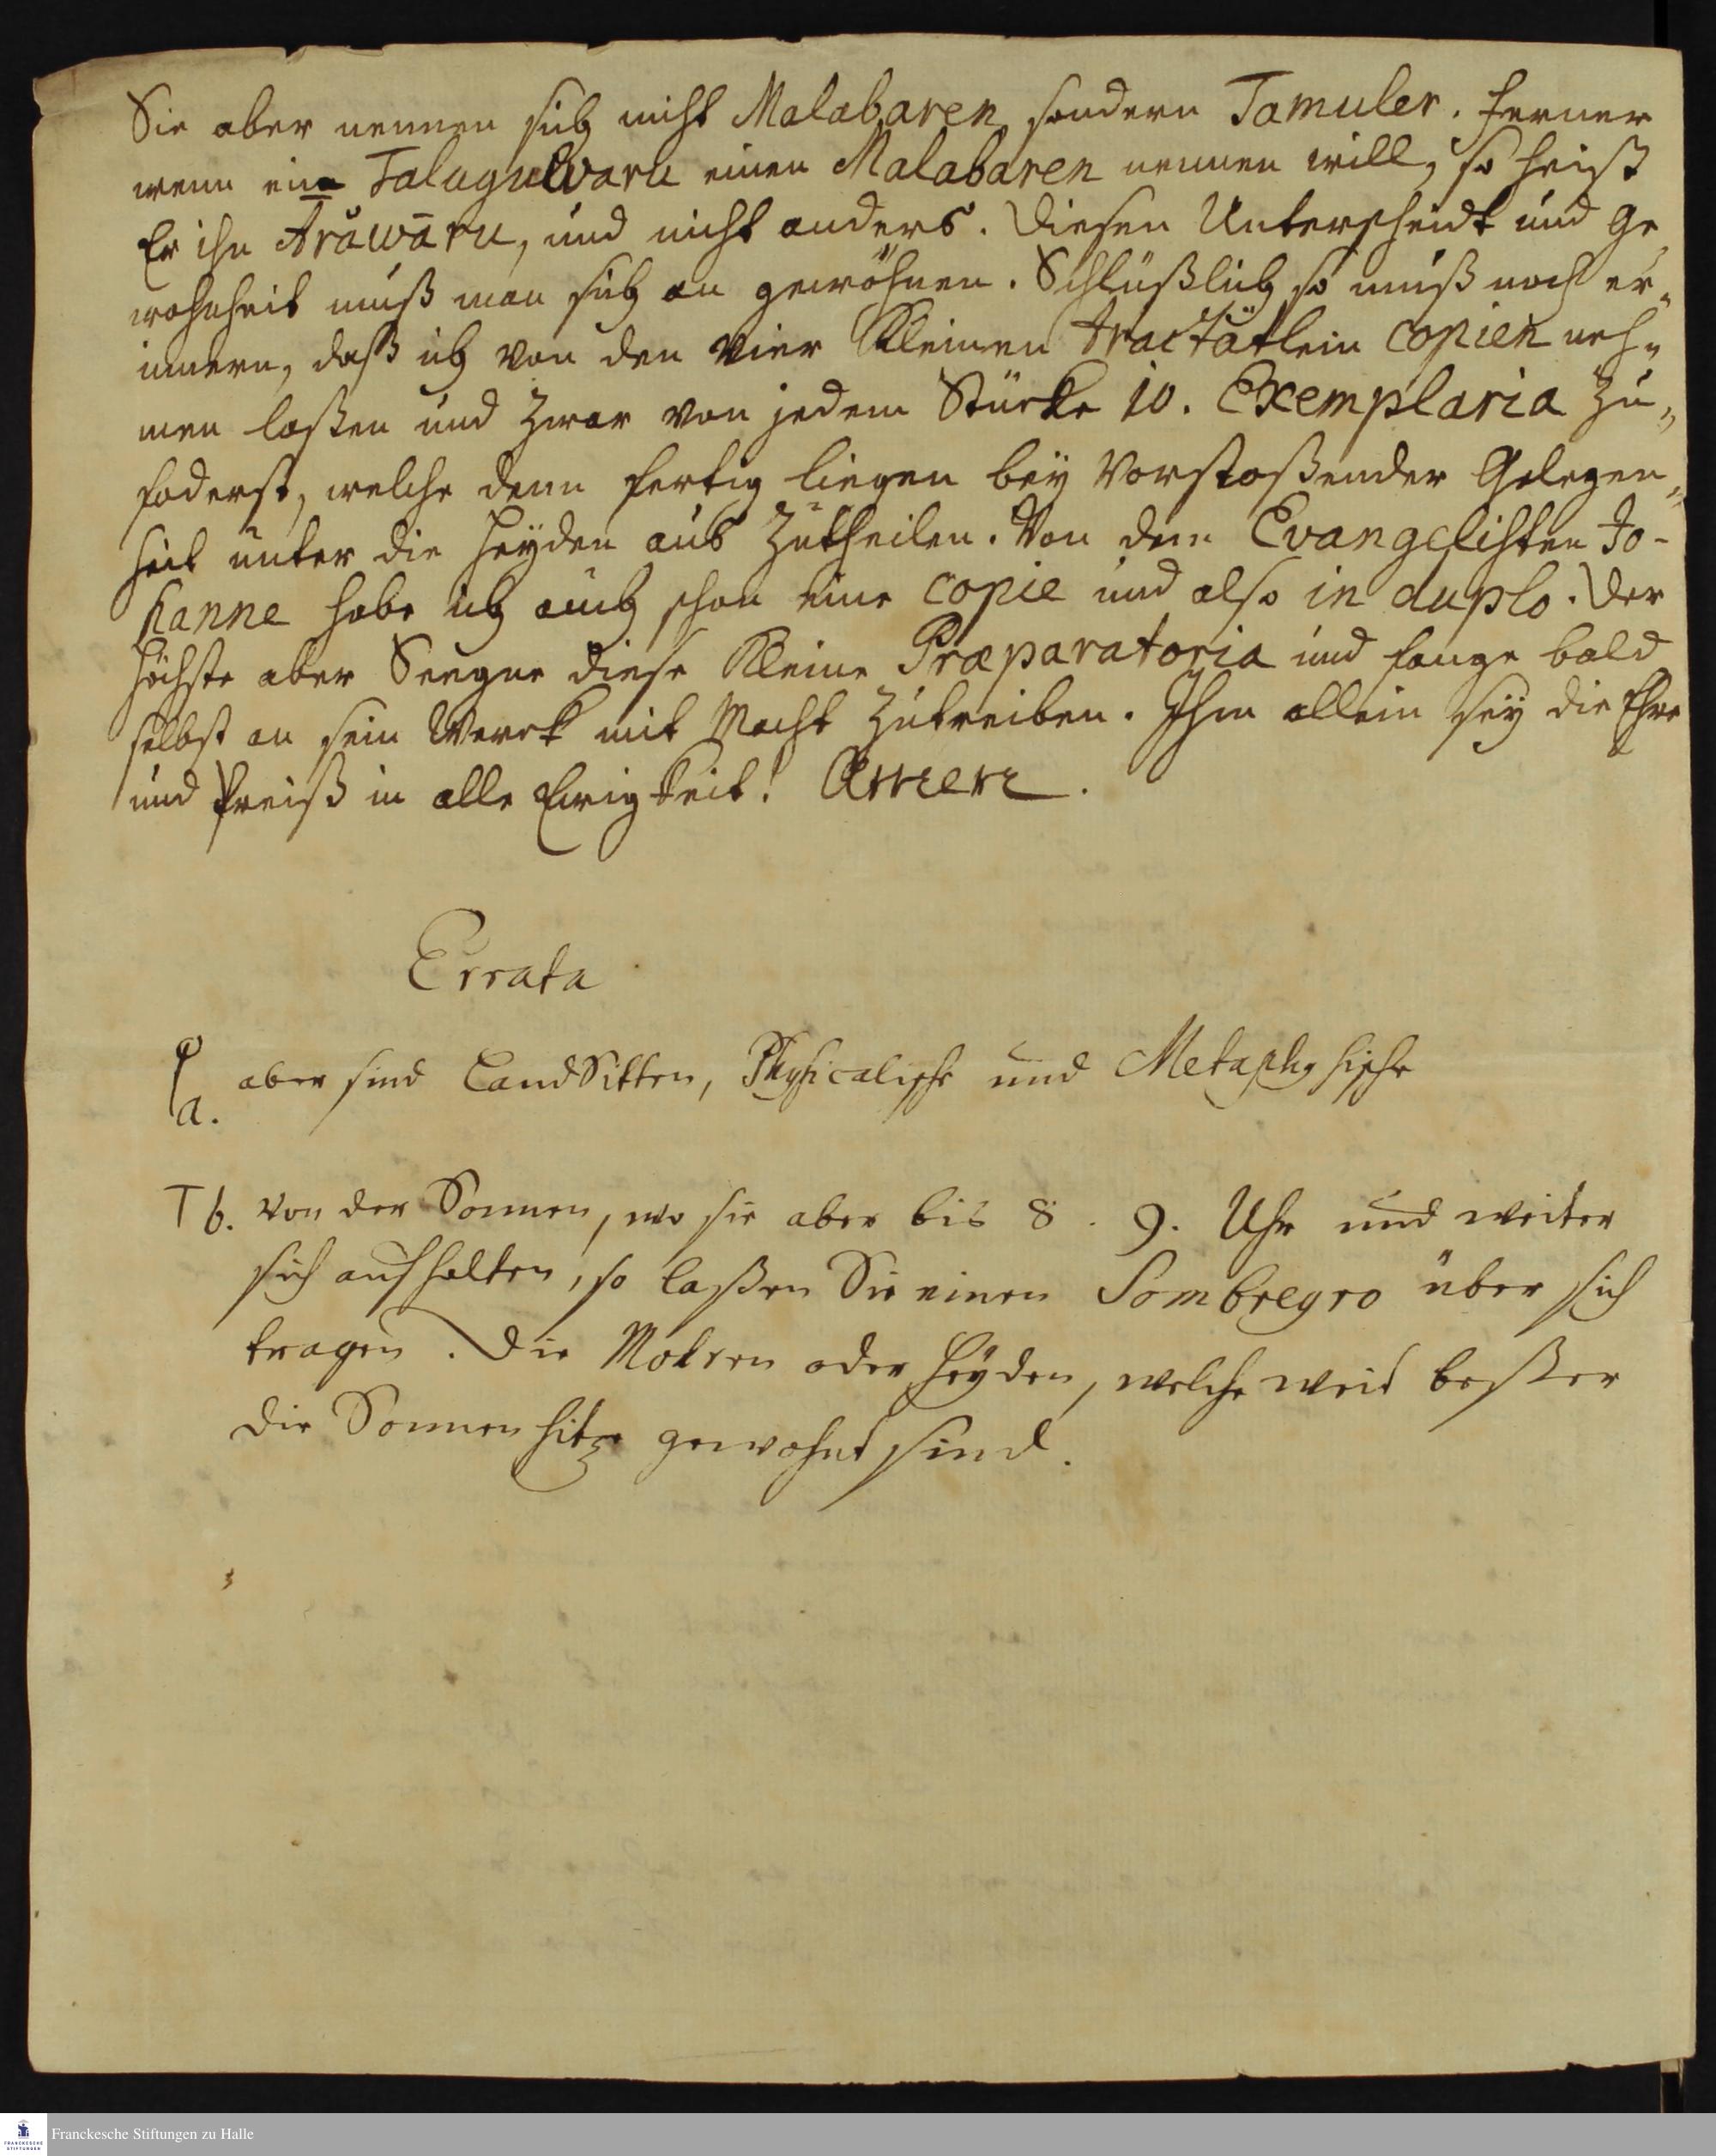 Sie aber nennen sich nicht Malabaren sondern Tamuler. ferner
wenn ein Talugulwaru einen Malabaren nennen will, so heist
Er ihn Arăwāru, und nicht anders. Diesen Unterscheidt und Ge„
wohnheit muß man sich an gewöhnen. Schlüßlich so muß noch er„
innern, daß ich von den vier Kleinen tractätlein copien neh„
men laßen und zwar von jedem Stücke 10. Exemplaria zu„
foderst, welche denn fertig liegen bey Vorstoßender Gelegen„
heit unter die Heyden aus zutheilen. Von dem Evangelisten Jo-
hanne habe ich auch schon eine copie und also in duplo. Der
höchste aber Seegne diese Kleine Præparatoria und fange bald
selbst an sein Werck mit Macht zutreiben. Ihm allein sey die Ehre
und Preiß in alle Ewigkeit! Amen.
Errata
a. aber sind LandSitten, Physicalische und Metaphysische
T b. von der Sonnen, wo sie aber bis 8. 9. Uhr und weiter
sich aufhalten, so laßen Sie einen Sombreyro über sich
tragen. Die Mohren oder Heyden, welche weit beßer
die Sonnenhitze gewohnt sind.
FRANCKESCHE
STIFTUNGEN
Franckesche Stiftungen zu Halle